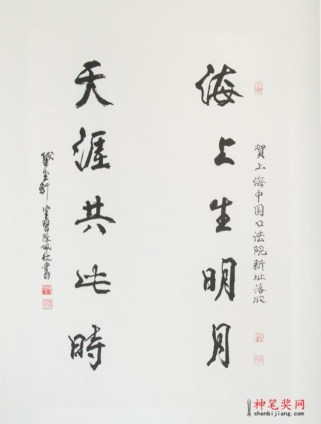 海上生明月
贺上海中国口法院新址落成
天涯共此时
陈佩秋书
神笔奖网
shenbijiang.com